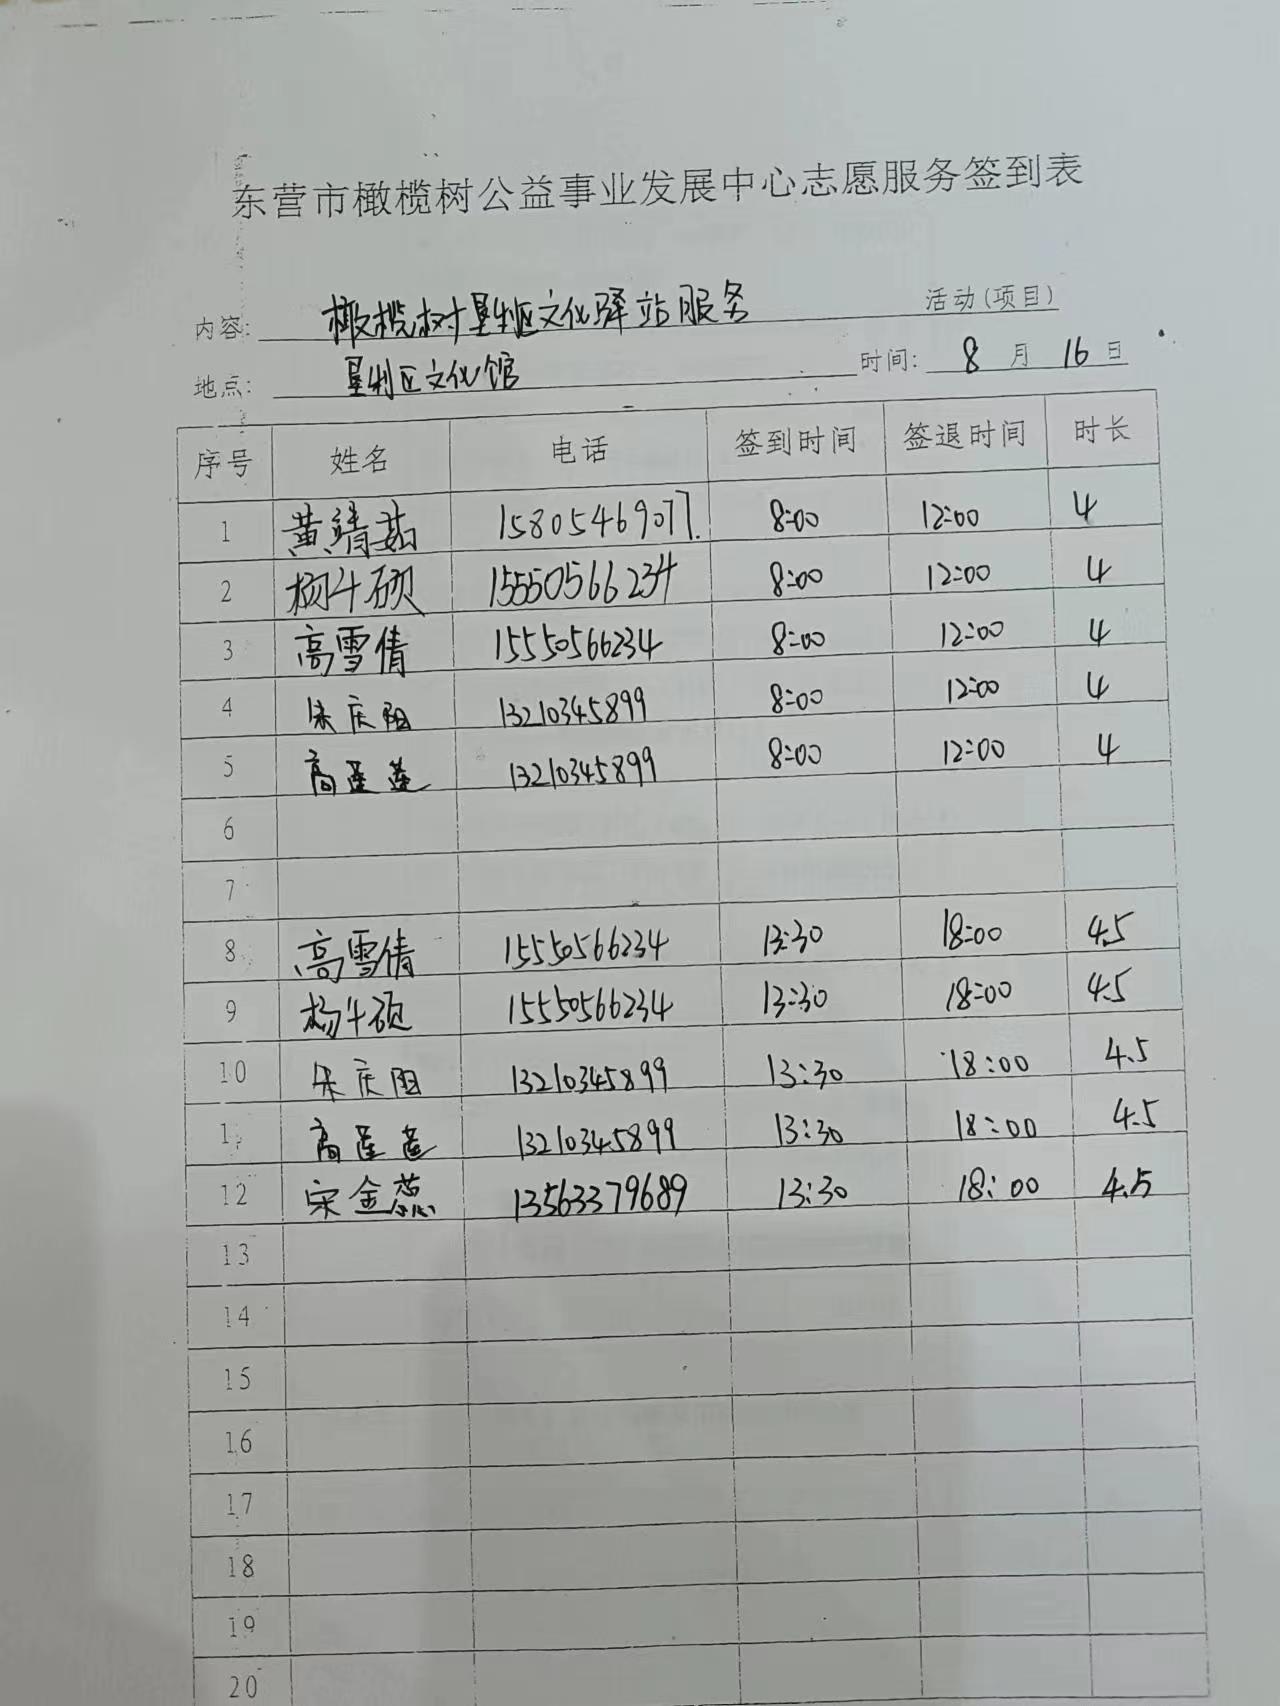 东营市橄榄树公益事业发展中心志愿服务签到表
内容: 橄榄树垦利区文化驿站服务 活动(项目)
地点: 垦利区文化馆 时间: 8 月 16 日
序号 姓名 电话 签到时间 签退时间 时长
1 黄靖茹 15805469077. 8:00 12:00 4
2 杨斗硕 15550566234 8:00 12:00 4
3 高雪倩 15550566234 8:00 12:00 4
4 宋庆阳 13210345899 8:00 12:00 4
5 高莲莲 13210345899 8:00 12:00 4
6
7
8 高雪倩 15550566234 13:30 18:00 4.5
9 杨斗硕 15550566234 13:30 18:00 4.5
10 宋庆阳 13210345899 13:30 18:00 4.5
1 高莲莲 13210345899 13:30 18:00 4.5
12 宋金蕊 13563379689 13:30 18:00 4.5
13
14
15
16
17
18
19
20